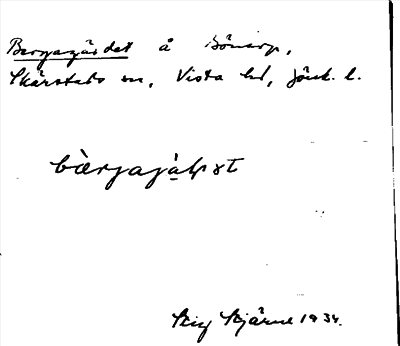 Bergagärdet å Bönarp,
Skärstads sn, Vista hd, Jönk. l.
Stig Stjärne 1934.